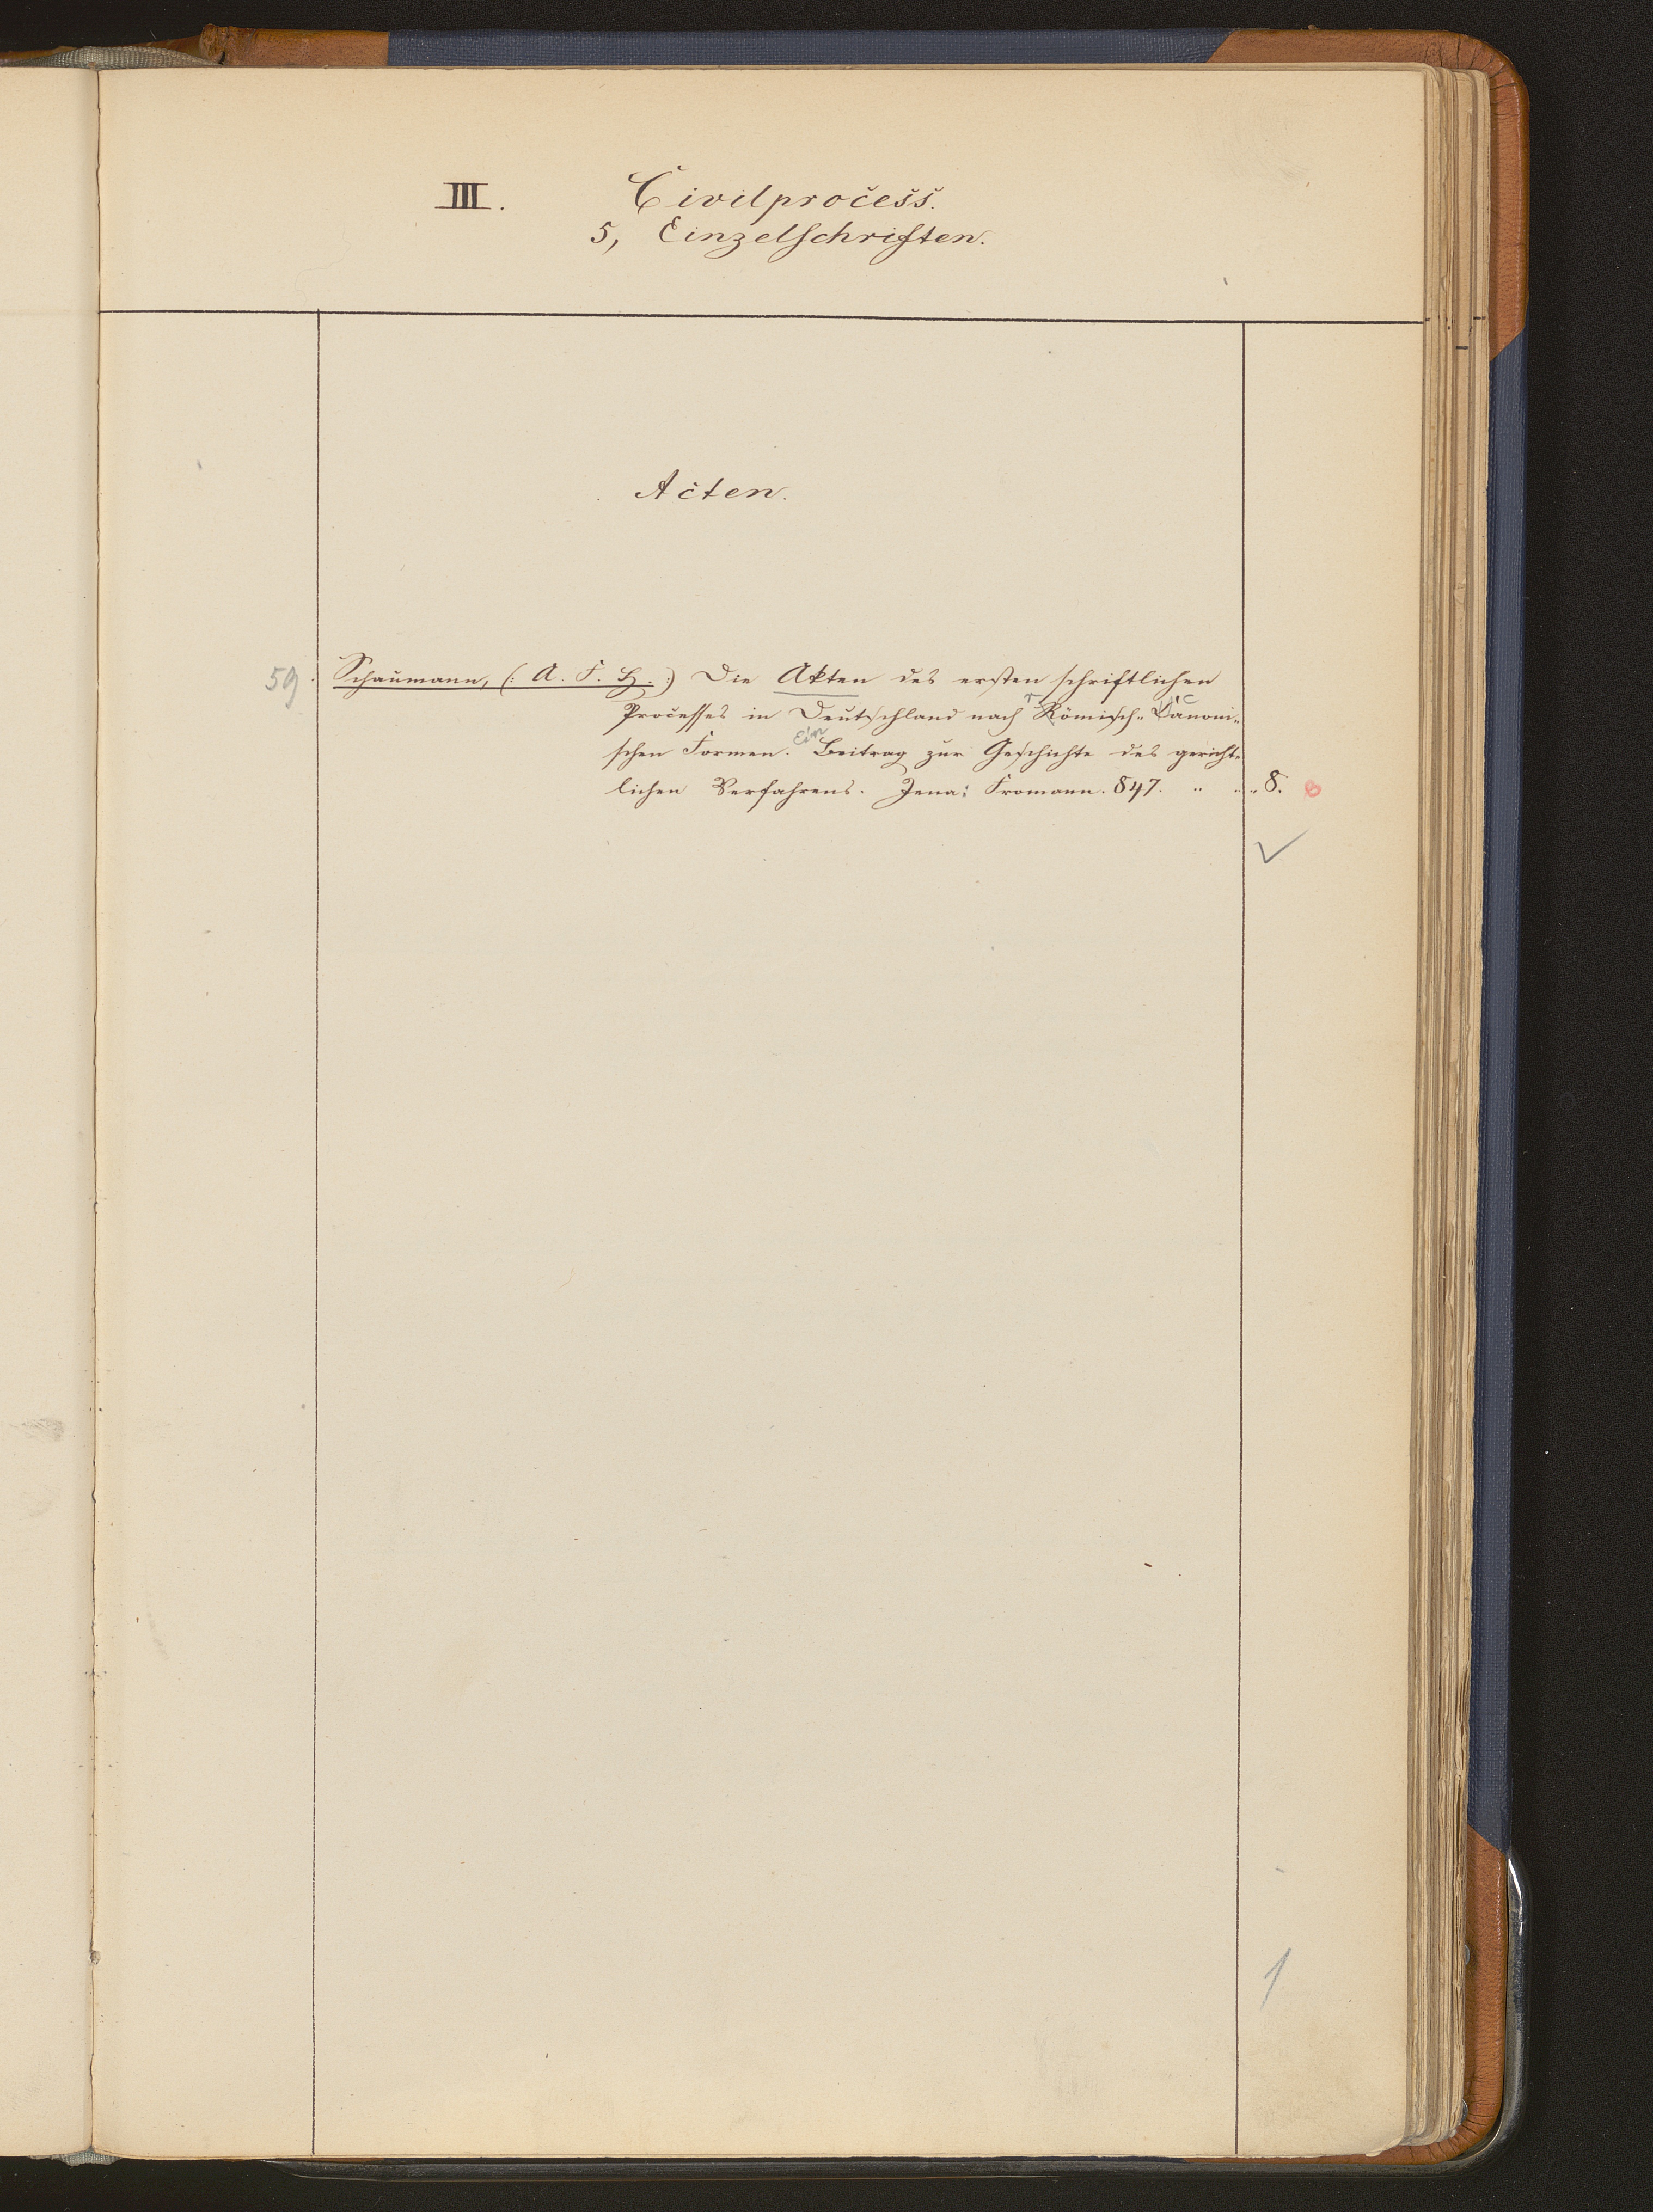 III. Civilprocess.
5, Einzelschriften.
Acten.
59. Schaumann, (: A. F. H. :) Die Akten des ersten schriftlichen
Processes in Deutschland nach Römisch-Canoni-
schen Formen. Ein Beitrag zur Geschichte des gericht-
lichen Verfahrens. Jena: Fromann. 847. " " " 8.
1